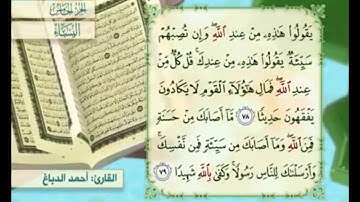 الجزء الخامس
النساء
يَقُولُوا هَٰذِهِۦ مِنْ عِندِ ٱللَّهِ ۖ وَإِن تُصِبْهُمْ
سَيِّئَةٌ يَقُولُوا هَٰذِهِۦ مِنْ عِندِكَ ۚ قُلْ كُلٌّ مِّنْ
عِندِ ٱللَّهِ ۖ فَمَالِ هَٰٓؤُلَآءِ ٱلْقَوْمِ لَا يَكَادُونَ
يَفْقَهُونَ حَدِيثًا ٧٨ مَّآ أَصَابَكَ مِنْ حَسَنَةٍ
فَمِنَ ٱللَّهِ ۖ وَمَآ أَصَابَكَ مِن سَيِّئَةٍ فَمِن نَّفْسِكَ ۚ
وَأَرْسَلْنَٰكَ لِلنَّاسِ رَسُولًا ۚ وَكَفَىٰ بِٱللَّهِ شَهِيدًا ٧٩
القارئ: أحمد الدباغ